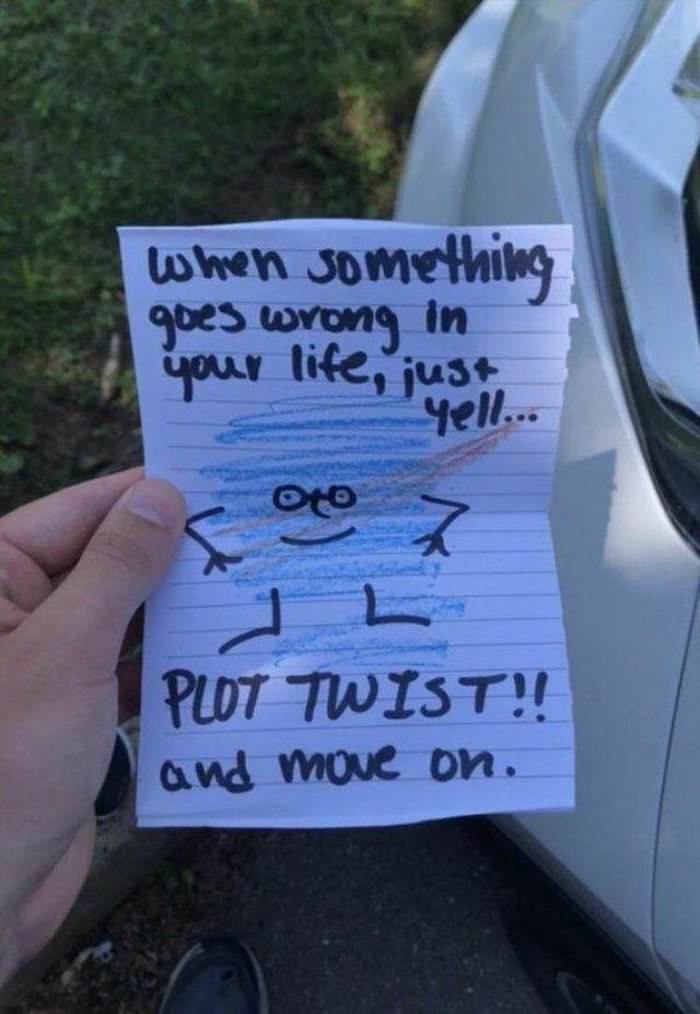 when something
goes wrong in
your life, just
yell...
PLOT TWIST!!
and move on.